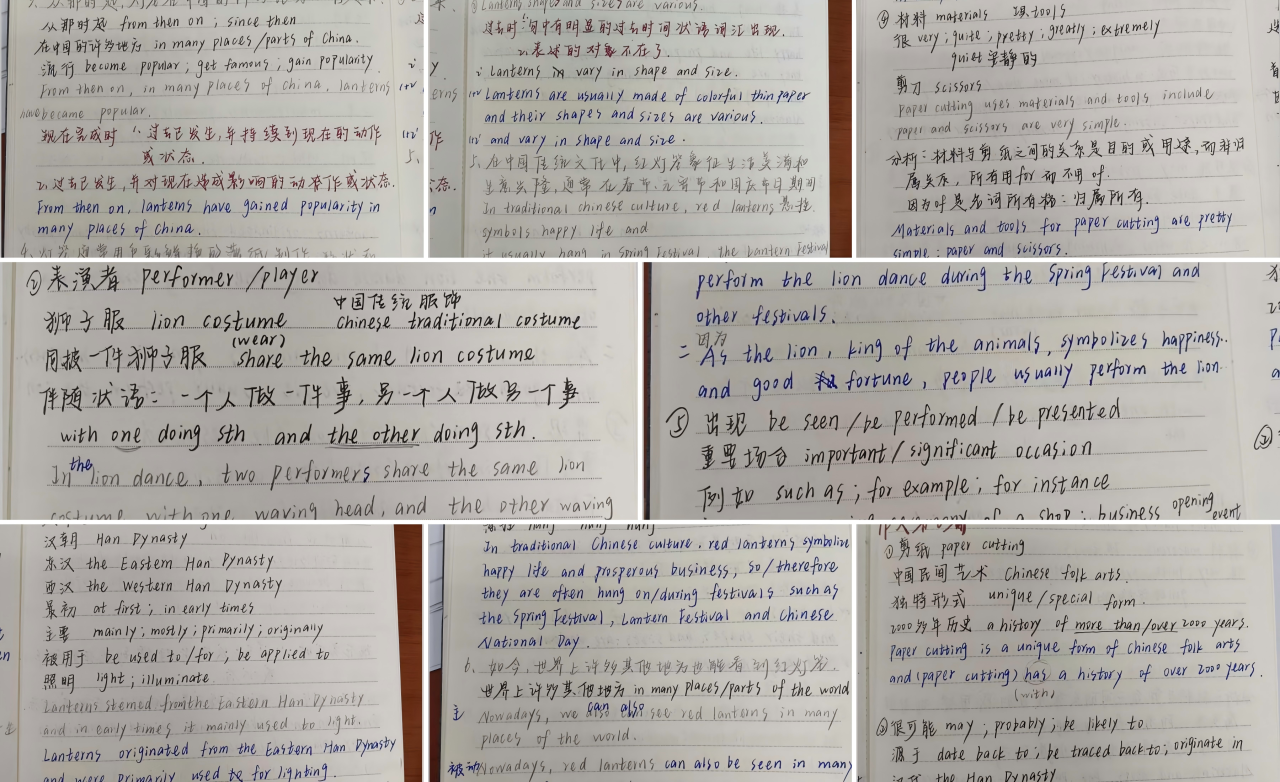 从那时起 from then on ; since then
在中国的许多地方 in many places/parts of China
流行 become popular ; get famous ; gain popularity
From then on, in many places of china, lanterns
have became popular.
现在完成时 1、过去已发生,并持续到现在的动作
或状态.
2、过去已发生,并对现在造成影响的动作或状态.
From then on, lanterns have gained popularity in
many places of China.
④ Lanterns shapes and sizes are various.
过去时:句中有明显的过去时间状语词汇出现.
2、表述的对象不在了.
Lanterns vary in shape and size.
Lanterns are usually made of colorful thin paper
and their shapes and sizes are various.
and vary in shape and size.
5、在中国传统文化中,红灯笼象征生活美满和
生意兴隆,通常在春节、元宵节和国庆节日期间
In traditional chinese culture, red lanterns 悬挂.
symbols happy life and
it usually hang in Spring Festival, the Lantern Festival
④ 材料 materials 工具 tools
很 very ; quite ; pretty ; greatly ; extremely
quiet 安静的
剪刀 scissors
paper cutting uses materials and tools include
paper and scissors are very simple.
分析:材料与剪纸之间的关系是目的或用途,而非归
属关系,所有用 for 而不用 of.
因为 of 是名词所有格:归属所有.
Materials and tools for paper cutting are pretty
simple : paper and scissors.
② 表演者 performer / player
中国传统服饰
狮子服 lion costume chinese traditional costume
(wear)
同披一件狮子服 share the same lion costume
伴随状语: 一个人做一件事,另一个人做另一个事
with one doing sth and the other doing sth.
In the lion dance, two performers share the same lion
costume with one waving head, and the other waving
perform the lion dance during the Spring Festival and
other festivals.
因为
= As the lion, king of the animals, symbolizes happiness
and good fortune, people usually perform the lion
⑤ 出现 be seen / be performed / be presented
重要场合 important / significant occasion
例如 such as ; for example ; for instance
of a shop ; business opening event
汉朝 Han Dynasty
东汉 the Eastern Han Dynasty
西汉 the Western Han Dynasty
最初 at first ; in early times
主要 mainly ; mostly ; primarily ; originally
被用于 be used to/for ; be applied to
照明 light ; illuminate
Lanterns stemed from the Eastern Han Dynasty
and in early times it mainly used to light.
Lanterns originated from the Eastern Han Dynasty
and were primarily used for lighting.
悬挂 hang hung hung
In traditional Chinese culture, red lanterns symbolize
happy life and prosperous business, so/therefore
they are often hung on/during festivals such as
the Spring Festival, Lantern Festival and Chinese
National Day.
6、如今,世界上许多其他地方也能看到红灯笼.
世界上许多其他地方 in many places/parts of the world
can also
主 Nowadays, we see red lanterns in many
places of the world.
被动 Nowadays, red lanterns can also be seen in many
① 剪纸 paper cutting
中国民间艺术 Chinese folk arts.
独特形式 unique/special form.
2000多年历史 a history of more than/over 2000 years.
Paper cutting is a unique form of Chinese folk arts
and (paper cutting) has a history of over 2000 years.
(with)
② 很可能 may ; probably ; be likely to
源于 date back to ; be traced back to ; originate in
汉朝 the Han Dynasty